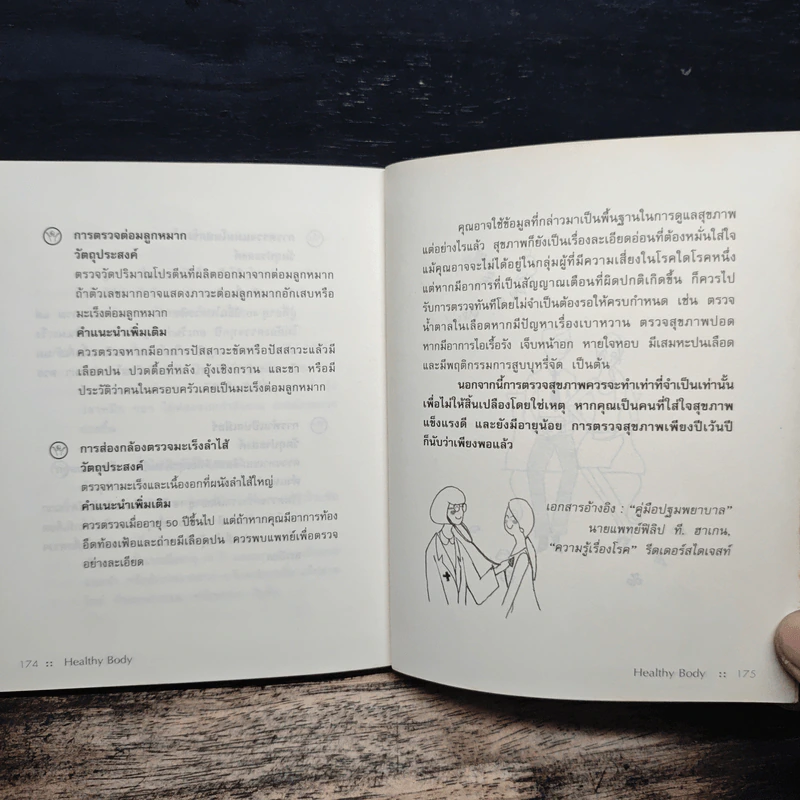 การตรวจต่อมลูกหมาก
วัตถุประสงค์
ตรวจวัดปริมาณโปรตีนที่ผลิตออกมาจากต่อมลูกหมาก
ถ้าตัวเลขมากอาจแสดงภาวะต่อมลูกหมากอักเสบหรือ
มะเร็งต่อมลูกหมาก
คำแนะนำเพิ่มเติม
ควรตรวจหากมีอาการปัสสาวะขัดหรือปัสสาวะแล้วมี
เลือดปน ปวดตื้อที่หลัง อุ้งเชิงกราน และขา หรือมี
ประวัติว่าคนในครอบครัวเคยเป็นมะเร็งต่อมลูกหมาก
การส่องกล้องตรวจมะเร็งลำไส้
วัตถุประสงค์
ตรวจหามะเร็งและเนื้องอกที่ผนังลำไส้ใหญ่
คำแนะนำเพิ่มเติม
ควรตรวจเมื่ออายุ 50 ปีขึ้นไป แต่ถ้าหากคุณมีอาการท้อง
อืดท้องเฟ้อและถ่ายมีเลือดปน ควรพบแพทย์เพื่อตรวจ
อย่างละเอียด
174 :: Healthy Body
คุณอาจใช้ข้อมูลที่กล่าวมาเป็นพื้นฐานในการดูแลสุขภาพ
แต่อย่างไรแล้ว สุขภาพก็ยังเป็นเรื่องละเอียดอ่อนที่ต้องหมั่นใส่ใจ
แม้คุณอาจจะไม่ได้อยู่ในกลุ่มผู้ที่มีความเสี่ยงในโรคใดโรคหนึ่ง
แต่หากมีอาการที่เป็นสัญญาณเตือนที่ผิดปกติเกิดขึ้น ก็ควรไป
รับการตรวจทันทีโดยไม่จำเป็นต้องรอให้ครบกำหนด เช่น ตรวจ
น้ำตาลในเลือดหากมีปัญหาเรื่องเบาหวาน ตรวจสุขภาพปอด
หากมีอาการไอเรื้อรัง เจ็บหน้าอก หายใจหอบ มีเสมหะปนเลือด
และมีพฤติกรรมการสูบบุหรี่จัด เป็นต้น
นอกจากนี้การตรวจสุขภาพควรจะทำเท่าที่จำเป็นเท่านั้น
เพื่อไม่ให้สิ้นเปลืองโดยใช่เหตุ หากคุณเป็นคนที่ใส่ใจสุขภาพ
แข็งแรงดี และยังมีอายุน้อย การตรวจสุขภาพเพียงปีเว้นปี
ก็นับว่าเพียงพอแล้ว
เอกสารอ้างอิง : "คู่มือปฐมพยาบาล"
นายแพทย์ฟิลิป ที. ฮาเกน,
"ความรู้เรื่องโรค" รีดเดอร์สไดเจสท์
Healthy Body :: 175